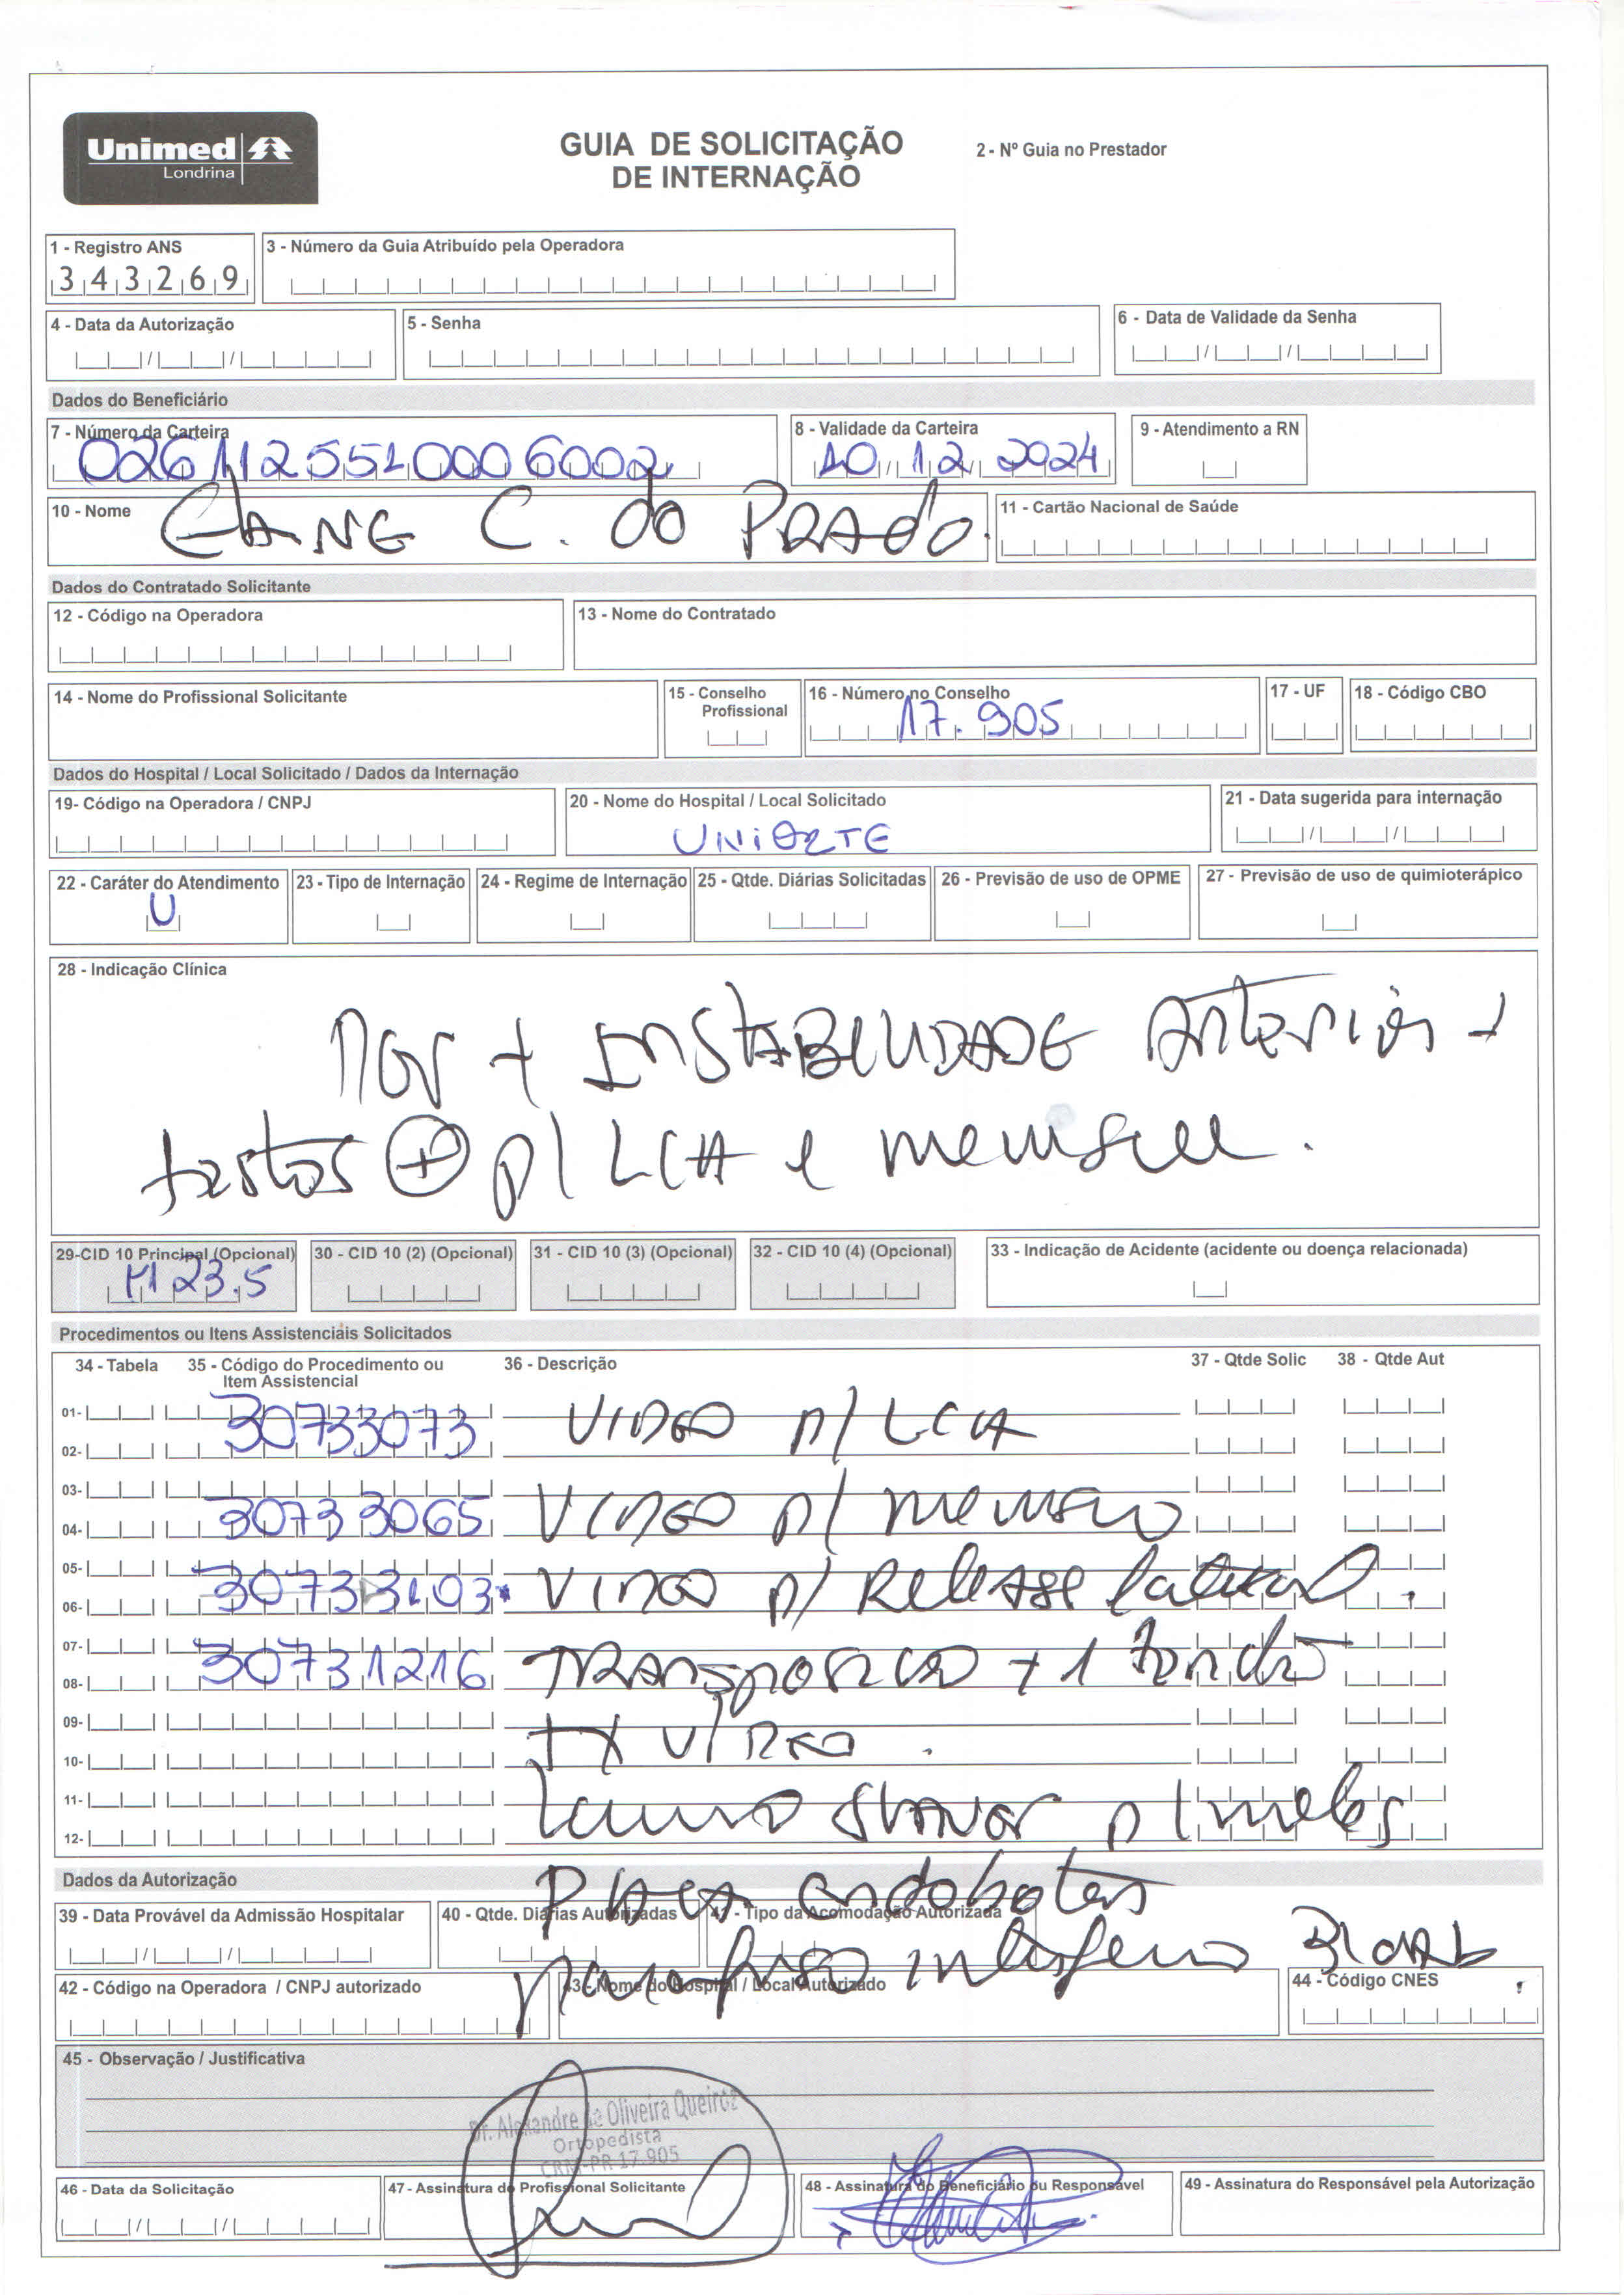 Unimed
Londrina
GUIA DE SOLICITAÇÃO
DE INTERNAÇÃO
2 - Nº Guia no Prestador
1 - Registro ANS
343269
3 - Número da Guia Atribuído pela Operadora
4 - Data da Autorização
5 - Senha
6 - Data de Validade da Senha
Dados do Beneficiário
7 - Número da Carteira
8 - Validade da Carteira
10 12 2024
9 - Atendimento a RN
10 - Nome
C. do PRAdo
11 - Cartão Nacional de Saúde
Dados do Contratado Solicitante
12 - Código na Operadora
13 - Nome do Contratado
14 - Nome do Profissional Solicitante
15 - Conselho
Profissional
16 - Número no Conselho
17.905
17 - UF
18 - Código CBO
Dados do Hospital / Local Solicitado / Dados da Internação
19- Código na Operadora / CNPJ
20 - Nome do Hospital / Local Solicitado
UNiORTE
21 - Data sugerida para internação
22 - Caráter do Atendimento
U
23 - Tipo de Internação
24 - Regime de Internação
25 - Qtde. Diárias Solicitadas
26 - Previsão de uso de OPME
27 - Previsão de uso de quimioterápico
28 - Indicação Clínica
+ INSTABILIDADE Anterior +
testos + p/ LCA e
29-CID 10 Principal (Opcional)
M23.5
30 - CID 10 (2) (Opcional)
31 - CID 10 (3) (Opcional)
32 - CID 10 (4) (Opcional)
33 - Indicação de Acidente (acidente ou doença relacionada)
Procedimentos ou Itens Assistenciais Solicitados
34 - Tabela
35 - Código do Procedimento ou
Item Assistencial
36 - Descrição
37 - Qtde Solic
38 - Qtde Aut
01-
30733073 VIDEO p/ LCA
02-
03-
04-
30733065 VIDEO p/ menisco
05-
06-
30733103 VIDEO p/ Release lateral.
07-
08-
30731216 TRANSPOSICAO + 1 tendão
09-
TX VIDEO.
10-
11-
SHAVER p/
12-
Dados da Autorização
PLACA endoboton
39 - Data Provável da Admissão Hospitalar
40 - Qtde. Diárias Autorizadas
41 - Tipo da Acomodação Autorizada
42 - Código na Operadora / CNPJ autorizado
43 - Nome do Hospital / Local Autorizado
44 - Código CNES
45 - Observação / Justificativa
Dr. Alexandre de Oliveira Queiroz
Ortopedista
CRM-PR 17.905
46 - Data da Solicitação
47 - Assinatura do Profissional Solicitante
48 - Assinatura do Beneficiário ou Responsável
49 - Assinatura do Responsável pela Autorização